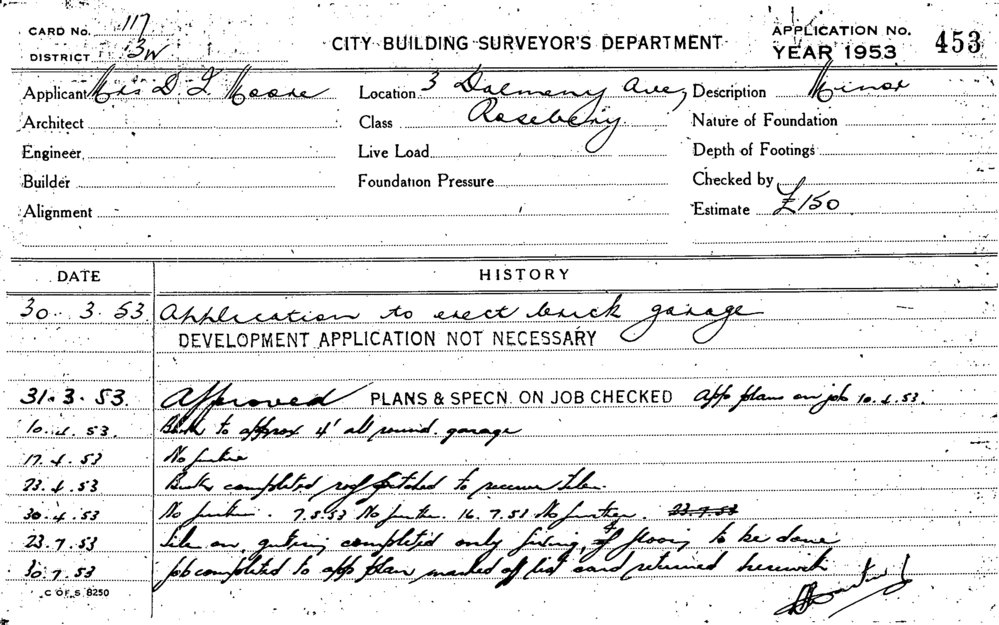 CARD No. 117
DISTRICT 3W
CITY BUILDING SURVEYOR'S DEPARTMENT
APPLICATION No. 453
YEAR 1953
Applicant Mrs D I Moore
Location 3 Dalmeny Ave,
Description Minor
Architect
Class Rosebery
Nature of Foundation
Engineer
Live Load
Depth of Footings
Builder
Foundation Pressure
Checked by
Alignment
Estimate £150
DATE HISTORY
30. 3. 53 Application to erect brick garage
DEVELOPMENT APPLICATION NOT NECESSARY
31.3.53. Approved PLANS & SPECN. ON JOB CHECKED App plans on job 10.4.53.
10.4.53. to approx 4' all round garage
17.4.53 No further
23.4.53 completed roof pitched to receive tiles.
30.4.53 No further. 7.5.53 No further. 16.7.53 No further. 23.7.53
23.7.53 Tiles on, guttering completed only flooring to be done
30.7.53 Job completed to app plan marked off list card returned herewith
C OF S 8250